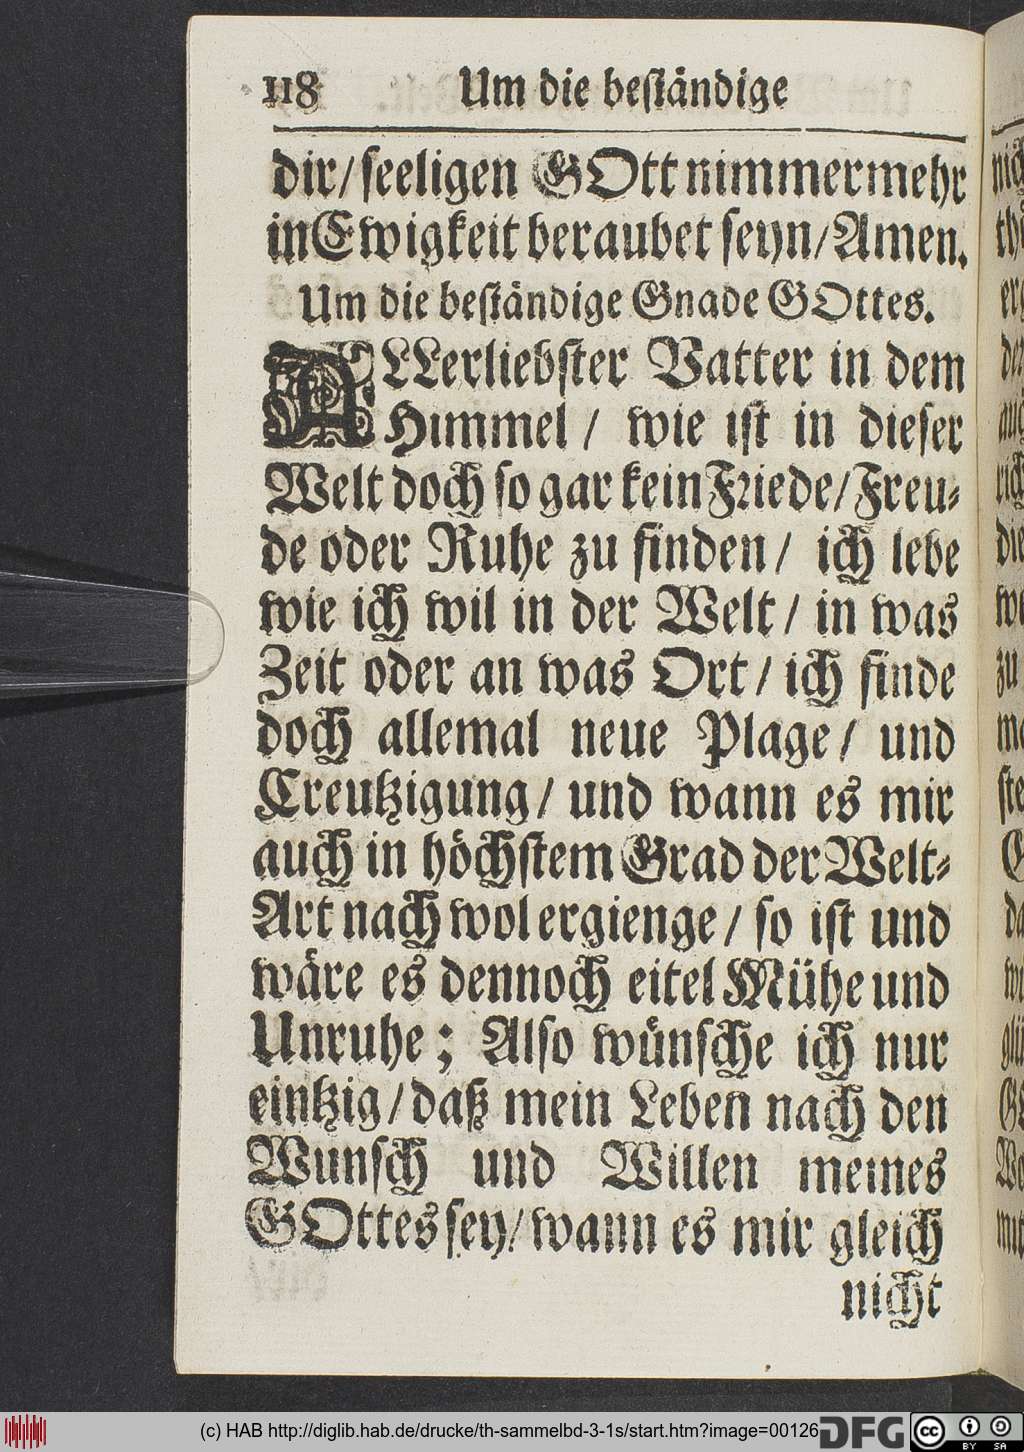 118 Um die beständige
dir/ seeligen GOtt nimmermehr
in Ewigkeit beraubet seyn/ Amen.
Um die beständige Gnade GOttes.
ALLerliebster Vatter in dem
Himmel / wie ist in dieser
Welt doch so gar kein Friede/ Freu-
de oder Ruhe zu finden/ ich lebe
wie ich wil in der Welt / in was
Zeit oder an was Ort / ich finde
doch allemal neue Plage/ und
Creutzigung/ und wann es mir
auch in höchstem Grad der Welt-
Art nach wol ergienge/ so ist und
wäre es dennoch eitel Mühe und
Unruhe; Also wünsche ich nur
eintzig/ daß mein Leben nach den
Wunsch und Willen meines
GOttes sey/ wann es mir gleich
nicht
(c) HAB http://diglib.hab.de/drucke/th-sammelbd-3-1s/start.htm?image=00126
DFG
cc BY SA